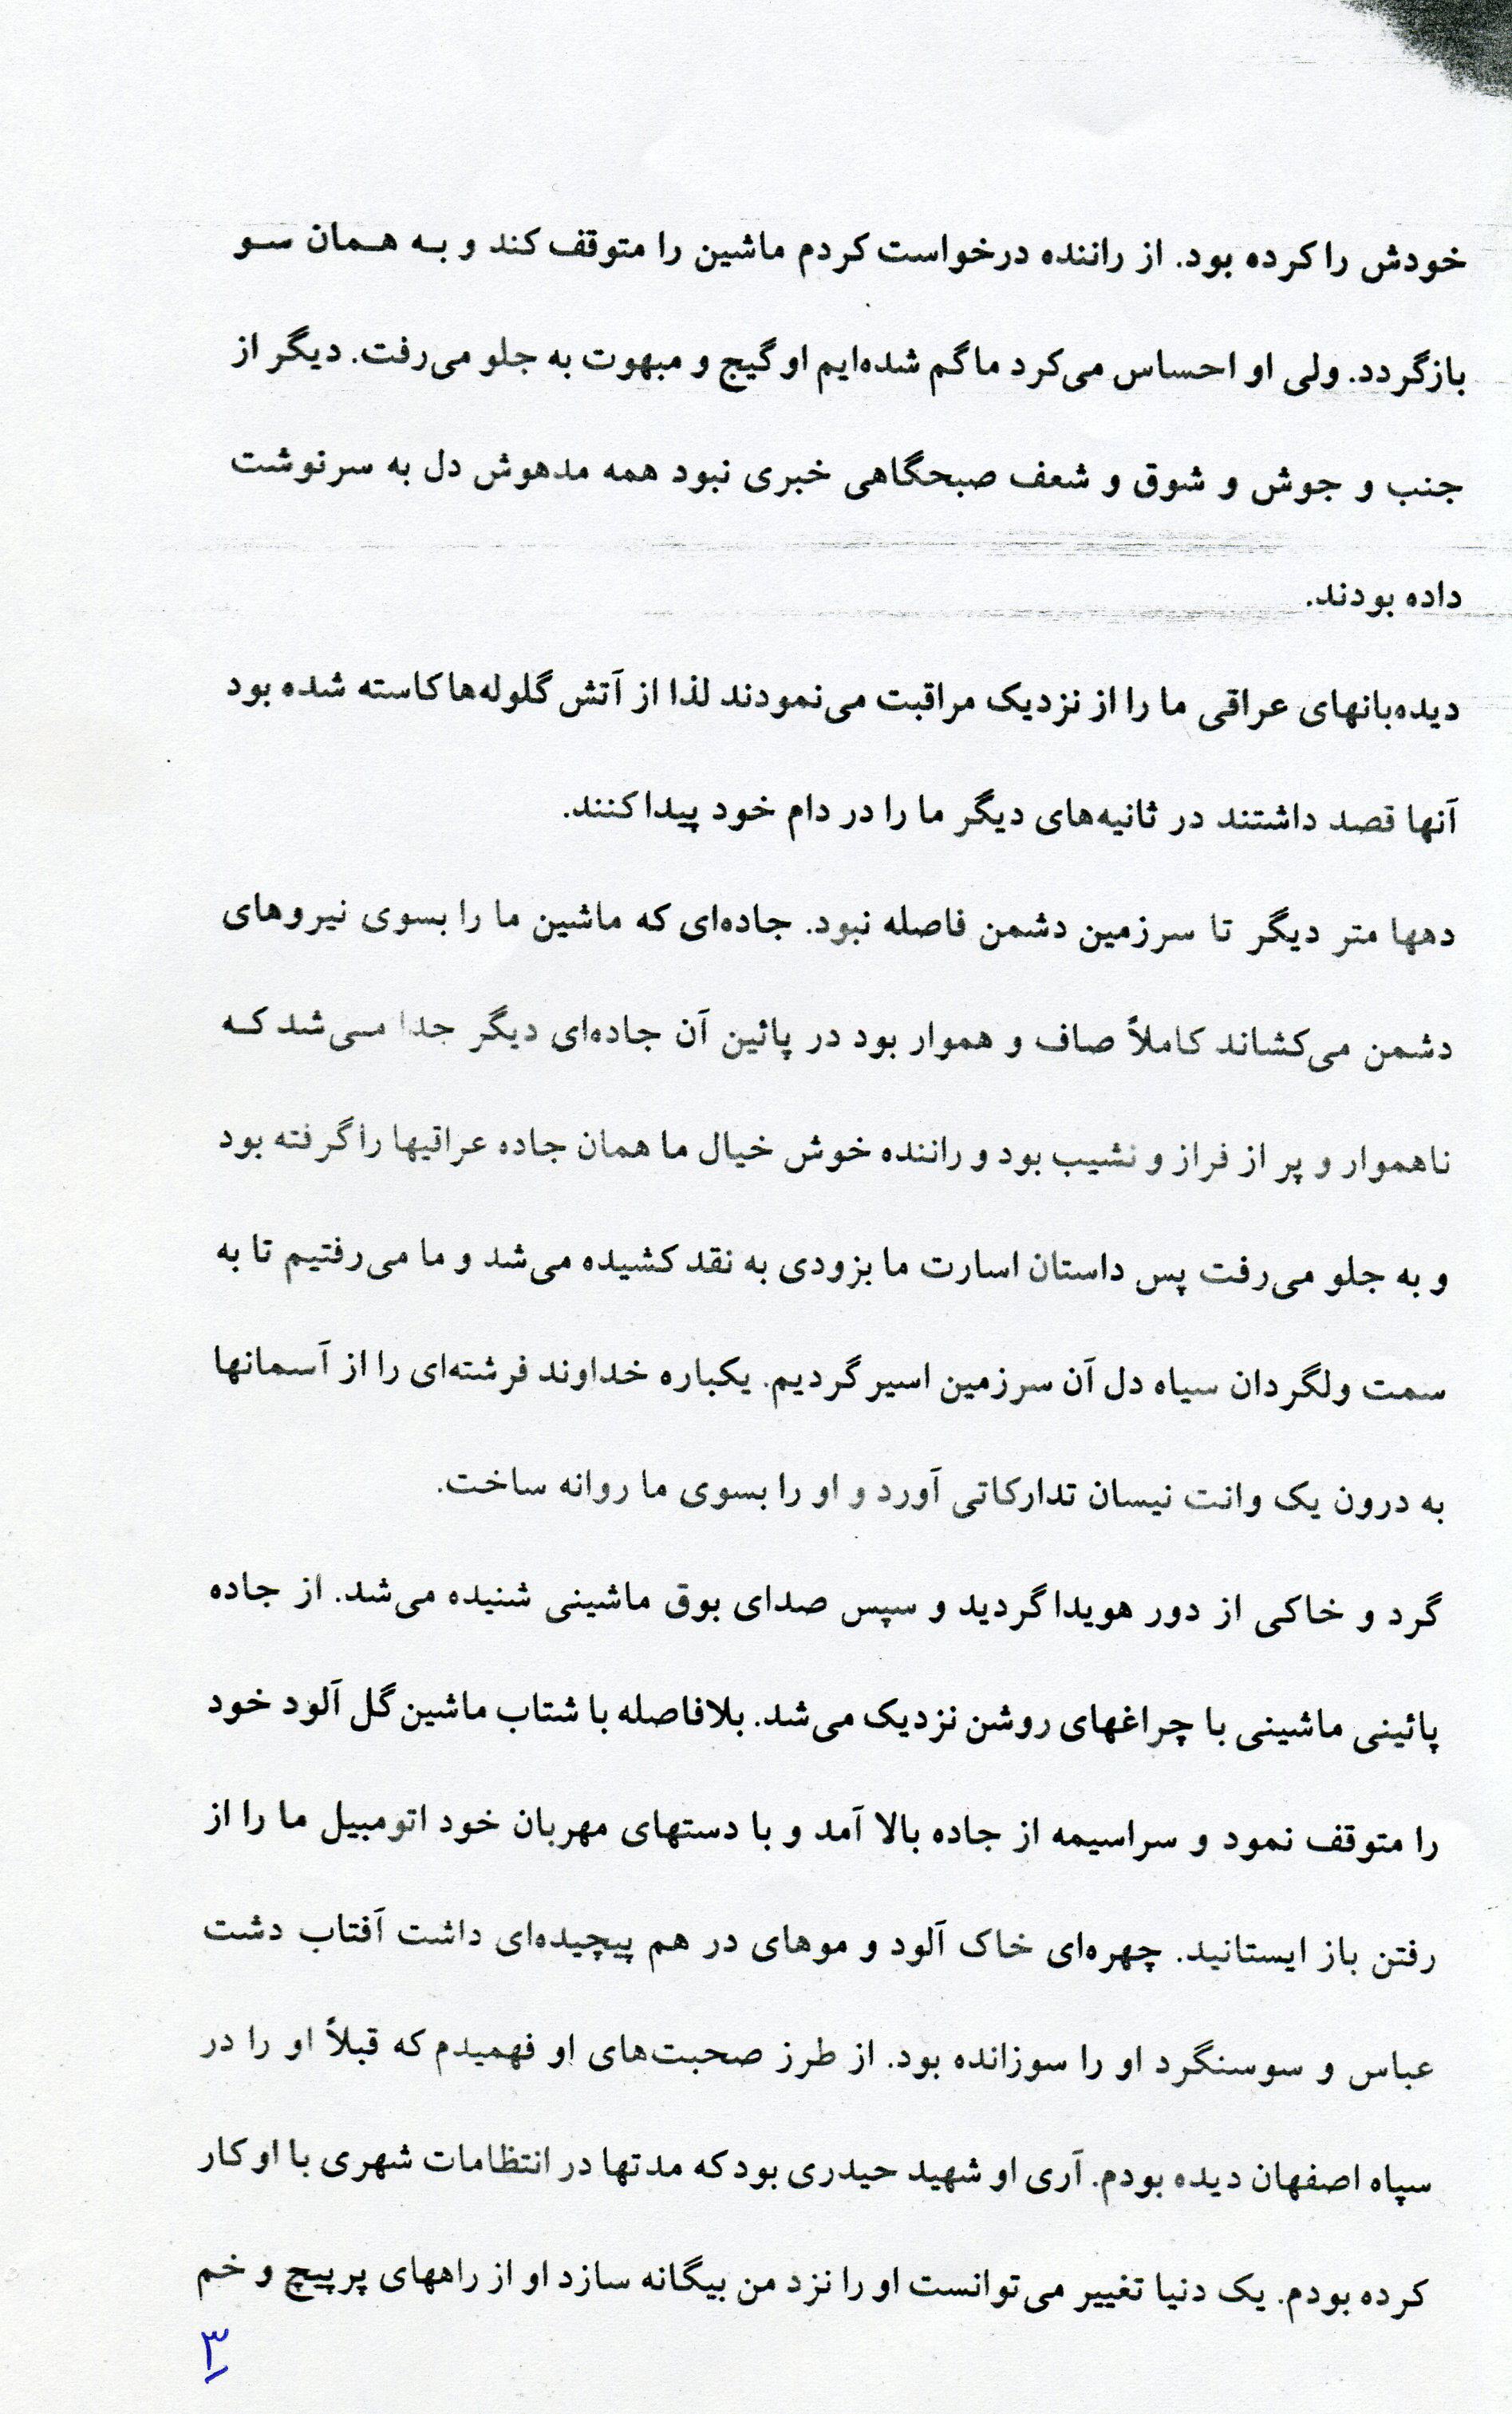 خودش را کرده بود. از راننده درخواست کردم ماشین را متوقف کند و به همان سو
بازگردد. ولی او احساس می‌کرد ما گم شده‌ایم او گیج و مبهوت به جلو می‌رفت. دیگر از
جنب و جوش و شوق و شعف صبحگاهی خبری نبود همه مدهوش دل به سرنوشت
داده بودند.
دیده‌بانهای عراقی ما را از نزدیک مراقبت می‌نمودند لذا از آتش گلوله‌ها کاسته شده بود
آنها قصد داشتند در ثانیه‌های دیگر ما را در دام خود پیدا کنند.
دهها متر دیگر تا سرزمین دشمن فاصله نبود. جاده‌ای که ماشین ما را بسوی نیروهای
دشمن می‌کشاند کاملاً صاف و هموار بود در پائین آن جاده‌ای دیگر جدا می‌شد که
ناهموار و پر از فراز و نشیب بود و راننده خوش خیال ما همان جاده عراقیها را گرفته بود
و به جلو می‌رفت پس داستان اسارت ما بزودی به نقد کشیده می‌شد و ما می‌رفتیم تا به
سمت ولگردان سیاه دل آن سرزمین اسیر گردیم. یکباره خداوند فرشته‌ای را از آسمانها
به درون یک وانت نیسان تدارکاتی آورد و او را بسوی ما روانه ساخت.
گرد و خاکی از دور هویدا گردید و سپس صدای بوق ماشینی شنیده می‌شد. از جاده
پائینی ماشینی با چراغهای روشن نزدیک می‌شد. بلافاصله با شتاب ماشین گل آلود خود
را متوقف نمود و سراسیمه از جاده بالا آمد و با دستهای مهربان خود اتومبیل ما را از
رفتن باز ایستانید. چهره‌ای خاک آلود و موهای در هم پیچیده‌ای داشت آفتاب دشت
عباس و سوسنگرد او را سوزانده بود. از طرز صحبت‌های او فهمیدم که قبلاً او را در
سپاه اصفهان دیده بودم. آری او شهید حیدری بود که مدتها در انتظامات شهری با او کار
کرده بودم. یک دنیا تغییر می‌توانست او را نزد من بیگانه سازد او از راههای پر پیچ و خم
۳